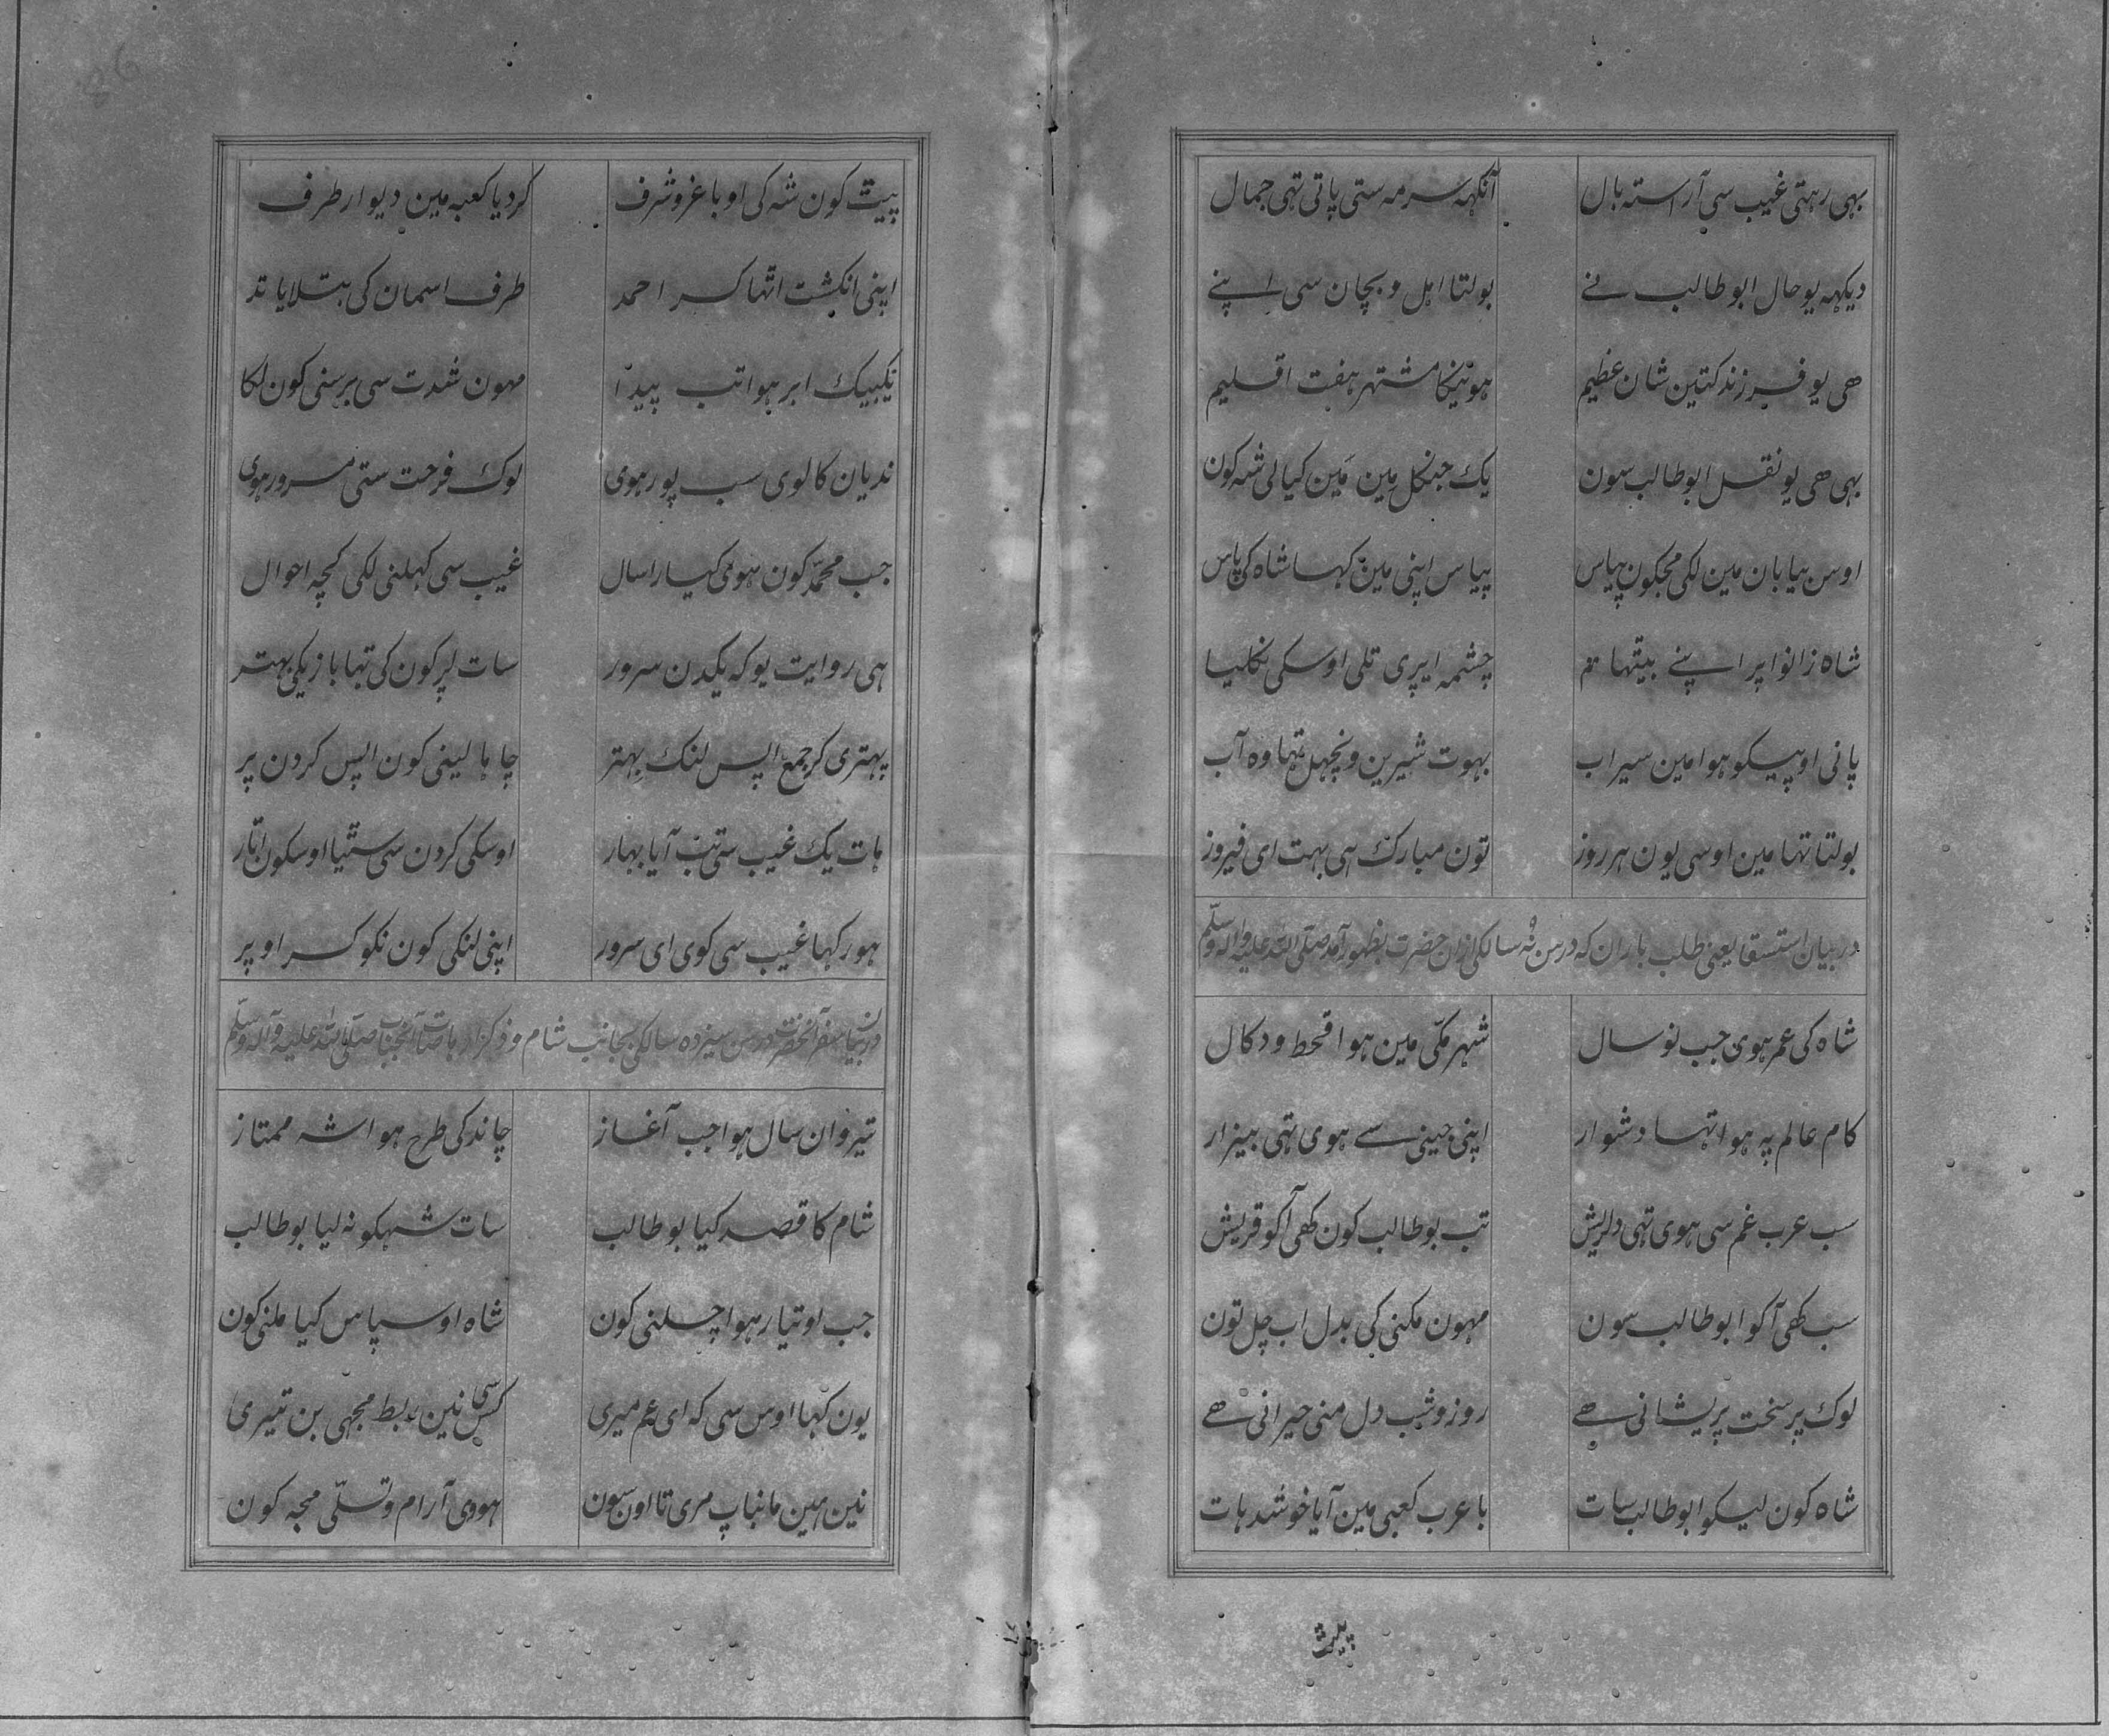 بہی رہتی غیب سی آراستہ بال آنکہہ سرمہ ستی پاتی تہی جمال
دیکہہ یو حال ابو طالب نے بولتا اہل و بچان سی اپنے
ھی یو فرزند کتین شان عظیم ہوئینکا مشتہر ہفت اقلیم
بہی ھی یو نقل ابو طالب سون یک جنکل مین مَین کیا لی شہ کون
اوس بیابان مین لکی مجکون پیاس پیاس اپنی مین کہا شاہ کی پاس
شاہ زانو اپر اپنے بیتہا چشمہ ایڑی تلی اوسکی نکلیا
پانی او پیکو ہوا مین سیراب بہوت شیرین و نچہل تہا وہ آب
بولتا تہا مین اوسی یون ہر روز تون مبارک ہی بہت ای فیروز
در بیان استسقا یعنی طلب باران کہ در سن نُہ سالکی ازان حضرت بظہور آمد صلّی اللہ علیہ وآلہ وسلّم
شاہ کی عمر ہوی جب نو سال شہر مکّی مین ہوا قحط و دکال
کام عالم پہ ہوا تہا دشوار اپنی جینی سے ہوی تہی بیزار
سب عرب غم سی ہوی تہی دلریش تب بو طالب کون کھی آکو قریش
سب کھی آکو ابو طالب سون مہون مکنی کی بدل اب چل تون
لوک پر سخت پریشانی ہے روز و شب دل منی حیرانی ھے
شاہ کون لیکو ابو طالب سات با عرب کعبی مین آیا خوشدہات
پیت
پیت کون شہ کی او با عز و شرف کر دیا کعبہ مین دیوار طرف
اپنی انکشت اتہا کر احمد طرف اسمان کی بتلایا تد
یکبیک ابر ہوا تب پیدا مہون شدت سی برسنی کون لکا
ندیان کالوی سب پور ہوی لوک فرحت ستی مسرور ہوی
جب محمّد کون ہوی کیارا سال غیب سی کہلنی لکی کچہ احوال
ہی روایت یو کہ یکدن سرور سات لڑکون کی تہا بازیکی بہتر
پہتری کر جمع اپس لنک بہتر چاہا لینی کون اپس کردن پر
ہات یک غیب ستی تب آیا بہار اوسکی کردن سی ستیا اوسکون اتار
ہور کہا غیب سی کوی ای سرور اپنی لنکی کون نکو کر اوپر
در بیان سفر آنحضرت در سن سیزدہ سالکی بجانب شام و ذکر ارہاصات آنجناب صلّی اللہ علیہ وآلہ وسلّم
تیروان سال ہوا جب آغاز چاند کی طرح ہوا شہ ممتاز
شام کا قصد کیا بو طالب سات شہکو نہ لیا بو طالب
جب او تیار ہوا چلنی کون شاہ اوسپاس کیا ملنی کون
یون کہا اوس سی کہ ای عم میری کس سی نین ربط مجہی بن تیری
نین ہین مانباپ مری تا اون سون ہووی آرام و تسلّی مجہ کون